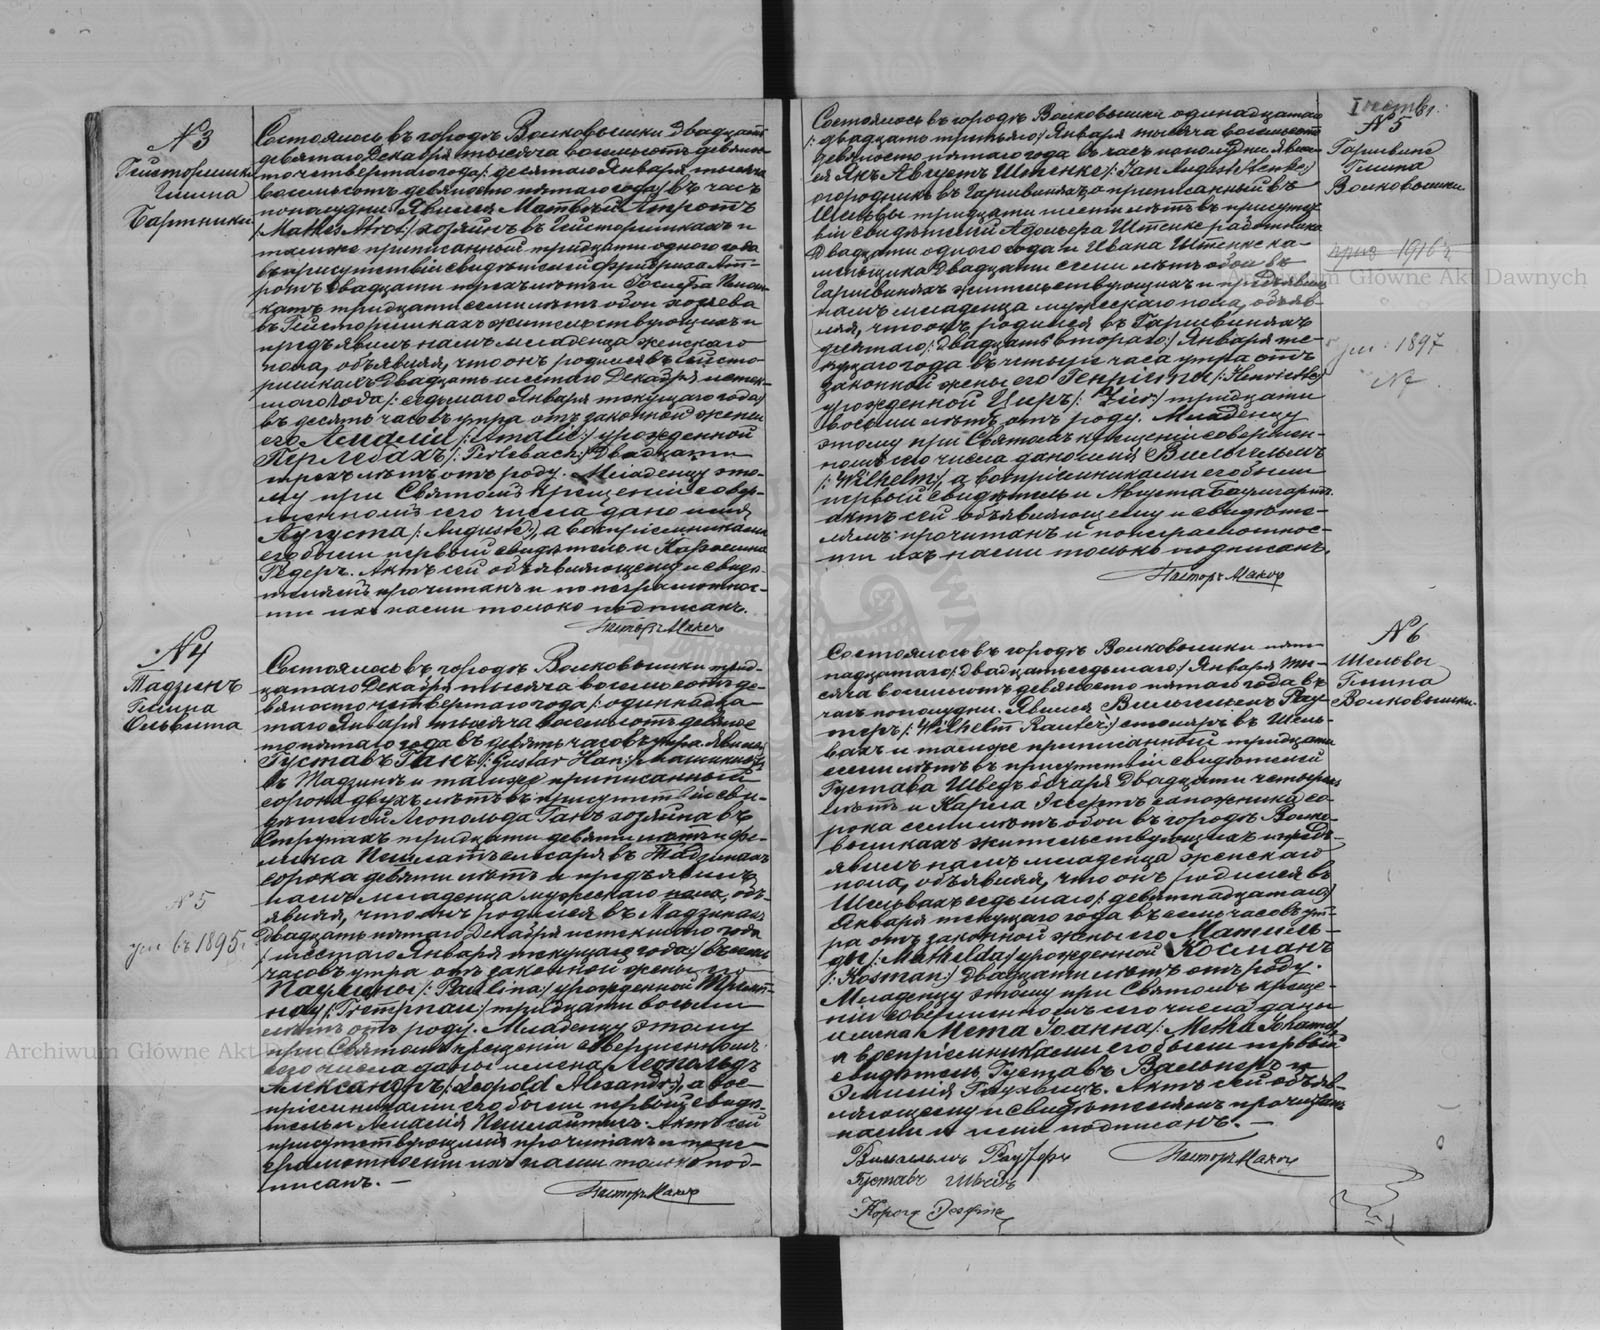 № 3
Гмина
Бартники
Состоялось въ городѣ Волковышки двадцать
девятаго Декабря тысяча восемьсотъ девянос-
то четвертаго года /: десятаго Января тысяча
восемьсотъ девяносто пятаго года :/ въ часъ
пополудни. Явился Матвѣй Атротъ
/: Mathes Atrot :/ хозяинъ въ Гейсторишкахъ и
тамже приписанный тридцати одного года
въ присутствіи свидѣтелей Фридриха Ат-
ротъ двадцати трехъ лѣтъ и
тридцати семи лѣтъ обои хозяева
въ Гейсторишкахъ жительствующихъ и
предъявилъ намъ младенца женскаго
пола, объявляя, что онъ родился въ Гейсто-
ришкахъ двадцать шестаго Декабря истек-
шаго года /: седьмаго Января текущаго года :/
въ десять часовъ утра отъ законной жены
его Амаліи /: Amalie :/ урожденной
Перлебахъ /: Perlebach :/ двадцати
трехъ лѣтъ отъ роду. Младенцу это-
му при Святомъ крещеніи совер-
шенномъ сего числа дано имя
Августа /: Auguste :/, а воспріемниками
его были первый свидѣтель и Каролина
Гедеръ. Актъ сей объявляющему и свидѣ-
телямъ прочитанъ и по неграмотнос-
ти ихъ нами только подписанъ.
Пасторъ
№ 4
Тадзинъ
Гмина
Ольвита
№ 5
ум. въ 1895 г.
Состоялось въ городѣ Волковышки трид-
цатаго Декабря тысяча восемьсотъ де-
вяносто четвертаго года /: одиннадца-
таго Января тысяча восемьсотъ девянос-
то пятаго года въ девять часовъ утра. Явился
Густавъ Ганъ /: Gustav Han :/
въ Тадзинѣ и тамже приписанный
сорока двухъ лѣтъ въ присутствіи сви-
дѣтелей Леопольда Ганъ хозяина въ
тридцати девяти лѣтъ и Фе-
ликса въ Тадзинахъ
сорока девяти лѣтъ и предъявилъ
намъ младенца мужескаго пола, объ-
являя, что онъ родился въ Тадзинахъ
двадцать пятаго Декабря истекшаго года
/: шестаго Января текущаго года :/ въ семь
часовъ утра отъ законной жены его
Паулины /: Paulina :/ урожденной Тремп-
нау /: Trempnau :/ тридцати восьми
лѣтъ отъ роду. Младенцу этому
при Святомъ крещеніи совершенномъ
сего числа даны имена Леопольдъ
Александръ /: Leopold Alexander :/, а вос-
пріемниками его были первый свидѣ-
тель и Амалія. Актъ сей
присутствующимъ прочитанъ и по не-
грамотности ихъ нами только под-
писанъ. —
Пасторъ
№ 5
Гмина
Волковышки
1916 г.
ум. 1897
№ 7
Состоялось въ городѣ Волковышки одинадцатаго
/: двадцать третьяго :/ Января тысяча восемьсотъ
девяносто пятаго года въ часъ пополудни. Явил-
ся Янъ Августъ Штенке /: Jan August Stenke :/
огородникъ въ приписанный въ
Шельвы тридцати шести лѣтъ въ присутст-
віи свидѣтелей Адольфа Штенке работника
двадцати одного года и Ивана Штенке ка-
меньщика двадцати семи лѣтъ обои въ
жительствующихъ и предъявилъ
намъ младенца мужескаго пола, объяв-
ляя, что онъ родился въ
десятаго /: двадцать втораго :/ Января те-
кущаго года въ четыре часа утра отъ
законной жены его Генріеты /: Henriette :/
урожденной Циръ /: Zier :/ тридцати
восьми лѣтъ отъ роду. Младенцу
этому при Святомъ крещеніи совершен-
номъ сего числа дано имя Вильгельмъ
/: Wilhelm :/, а воспріемниками его были
первый свидѣтель и Августа Баумгартъ.
Актъ сей объявляющему и свидѣте-
лямъ прочитанъ и по неграмотнос-
ти ихъ нами только подписанъ.
Пасторъ
№ 6
Шельвы
Гмина
Волковышки
Состоялось въ городѣ Волковышки пят-
надцатаго /: двадцать седьмаго :/ Января ты-
сяча восемьсотъ девяносто пятаго года въ
часъ пополудни. Явился Вильгельмъ Рау-
теръ /: Wilhelm Rauter :/ столяръ въ Шель-
вахъ и тамже приписанный тридцати
семи лѣтъ въ присутствіи свидѣтелей
Густава Шведъ бочаря двадцати четырехъ
лѣтъ и Карла сапожника со-
рока семи лѣтъ обои въ городѣ Волко-
вышкахъ жительствующихъ и предъ-
явилъ намъ младенца женскаго
пола, объявляя, что онъ родился въ
Шельвахъ седьмаго /: девятнадцатаго :/
Января текущаго года въ семь часовъ ут-
ра отъ законной жены его Матиль-
ды /: Mathelda :/ урожденной Косманъ
/: Kosman :/ двадцати лѣтъ отъ роду.
Младенцу этому при Святомъ креще-
ніи совершенномъ сего числа даны
имена Мета Іоанна /: Metha Johanna :/,
а воспріемниками его были первый
свидѣтель, Густавъ Вальнеръ и
Эмилія. Актъ сей объяв-
ляющему и свидѣтелямъ прочитанъ
нами и ими подписанъ. —
Вильгельмъ Раутеръ
Густавъ Шведъ
Пасторъ
Archiwum Główne Akt Dawnych
Archiwum Główne Akt Dawnych